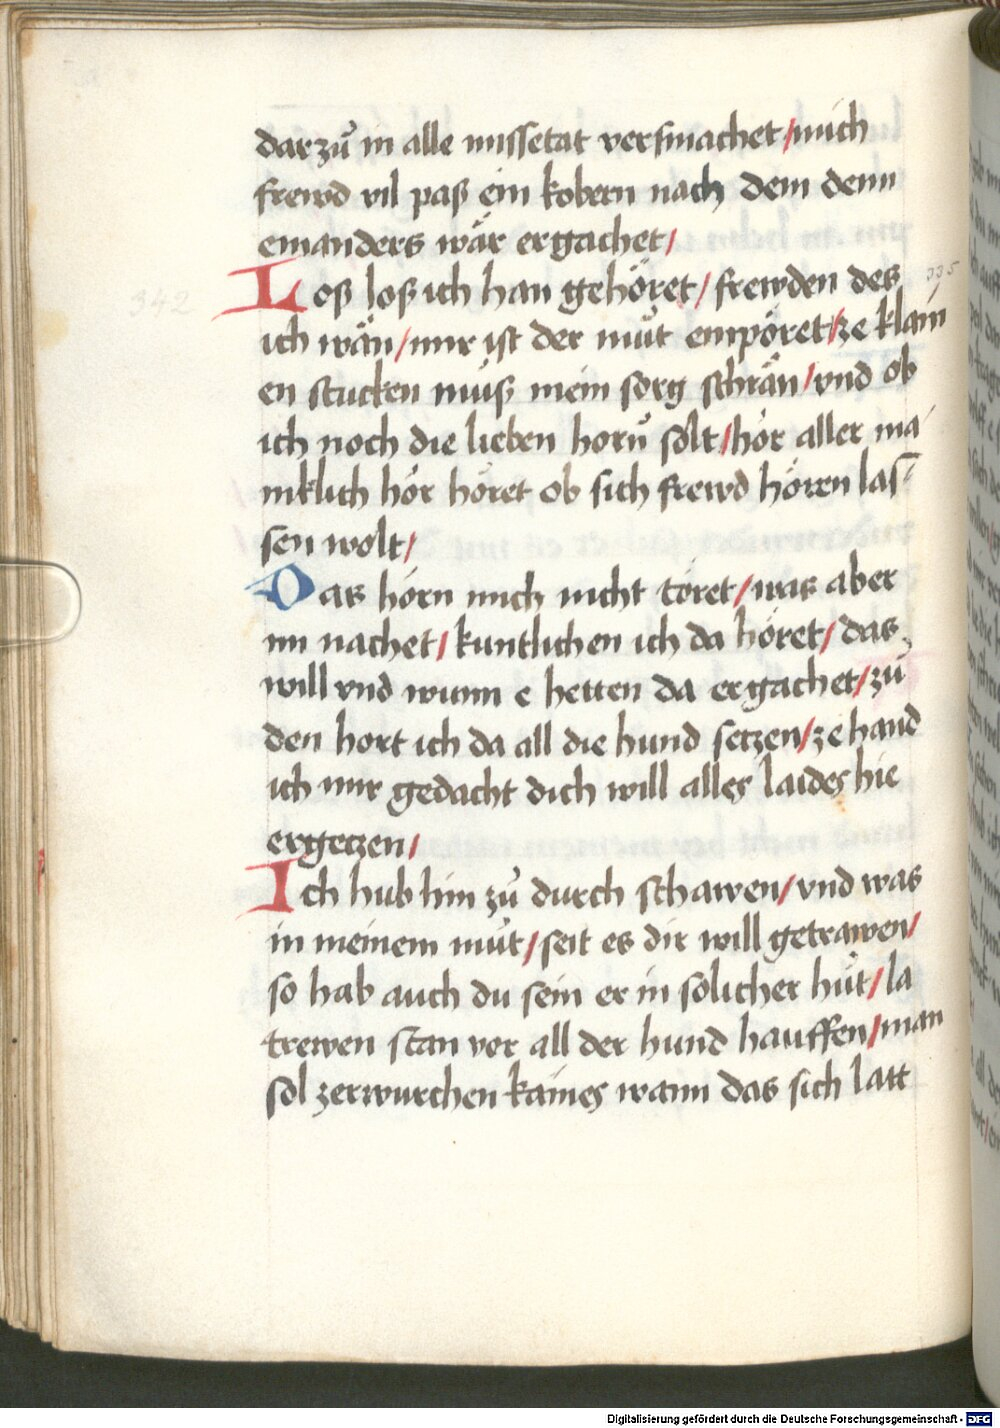 darzů in alle missetat versmachet / mich
frewd vil paß ein kobern nach dem denn
emanders wär ergachet /
Loß loß ich han gehöret / frewden des
335
342
ich wän / mir ist der můt empöret / ze klain
en stucken můß mein sorg schrän / vnd ob
ich noch die lieben horn̆ solt / hör aller mä
niklich hör höret ob sich frewd hören las-
sen wolt /
Das hörn mich nicht töret / was aber
im nachet / kuntlichen ich da höret / das
will vnd wunn e hetten da ergachet / zů
den hort ich da all die hund setzen / ze hand
ich mir gedacht dich will alles laides hie
ergetzen /
Ich hub hin zů durch schawen / vnd was
in meinem můt / seit es dir will getrawen /
so hab auch du sein er in solicher hůt / la
trewen stan vor all der hund hauffen / man
sol zerwurchen kaines wann das sich latt
Digitalisierung gefördert durch die Deutsche Forschungsgemeinschaft - DFG